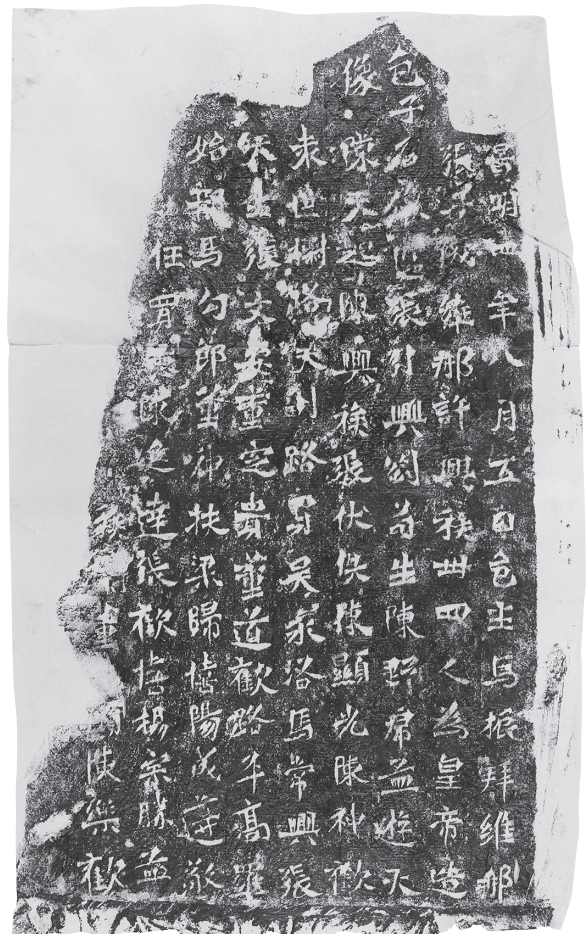 景明四年八月五日邑主馬振拜維那
張子成維那許興族卅四人為皇帝造
邑子石像張引興劉苟生陳野虎孟遊天
像陳天起陳興族張伏俱陳顯光陳神歡
來世樹路天副路買吳永洛馬常興張
朱生張文安董定貴董道歡路平高羅
始馬勾郎董神扶梁歸憘陽成蓮敬
任買陳延達張歡憘楊宗勝孟
董陳樂歡